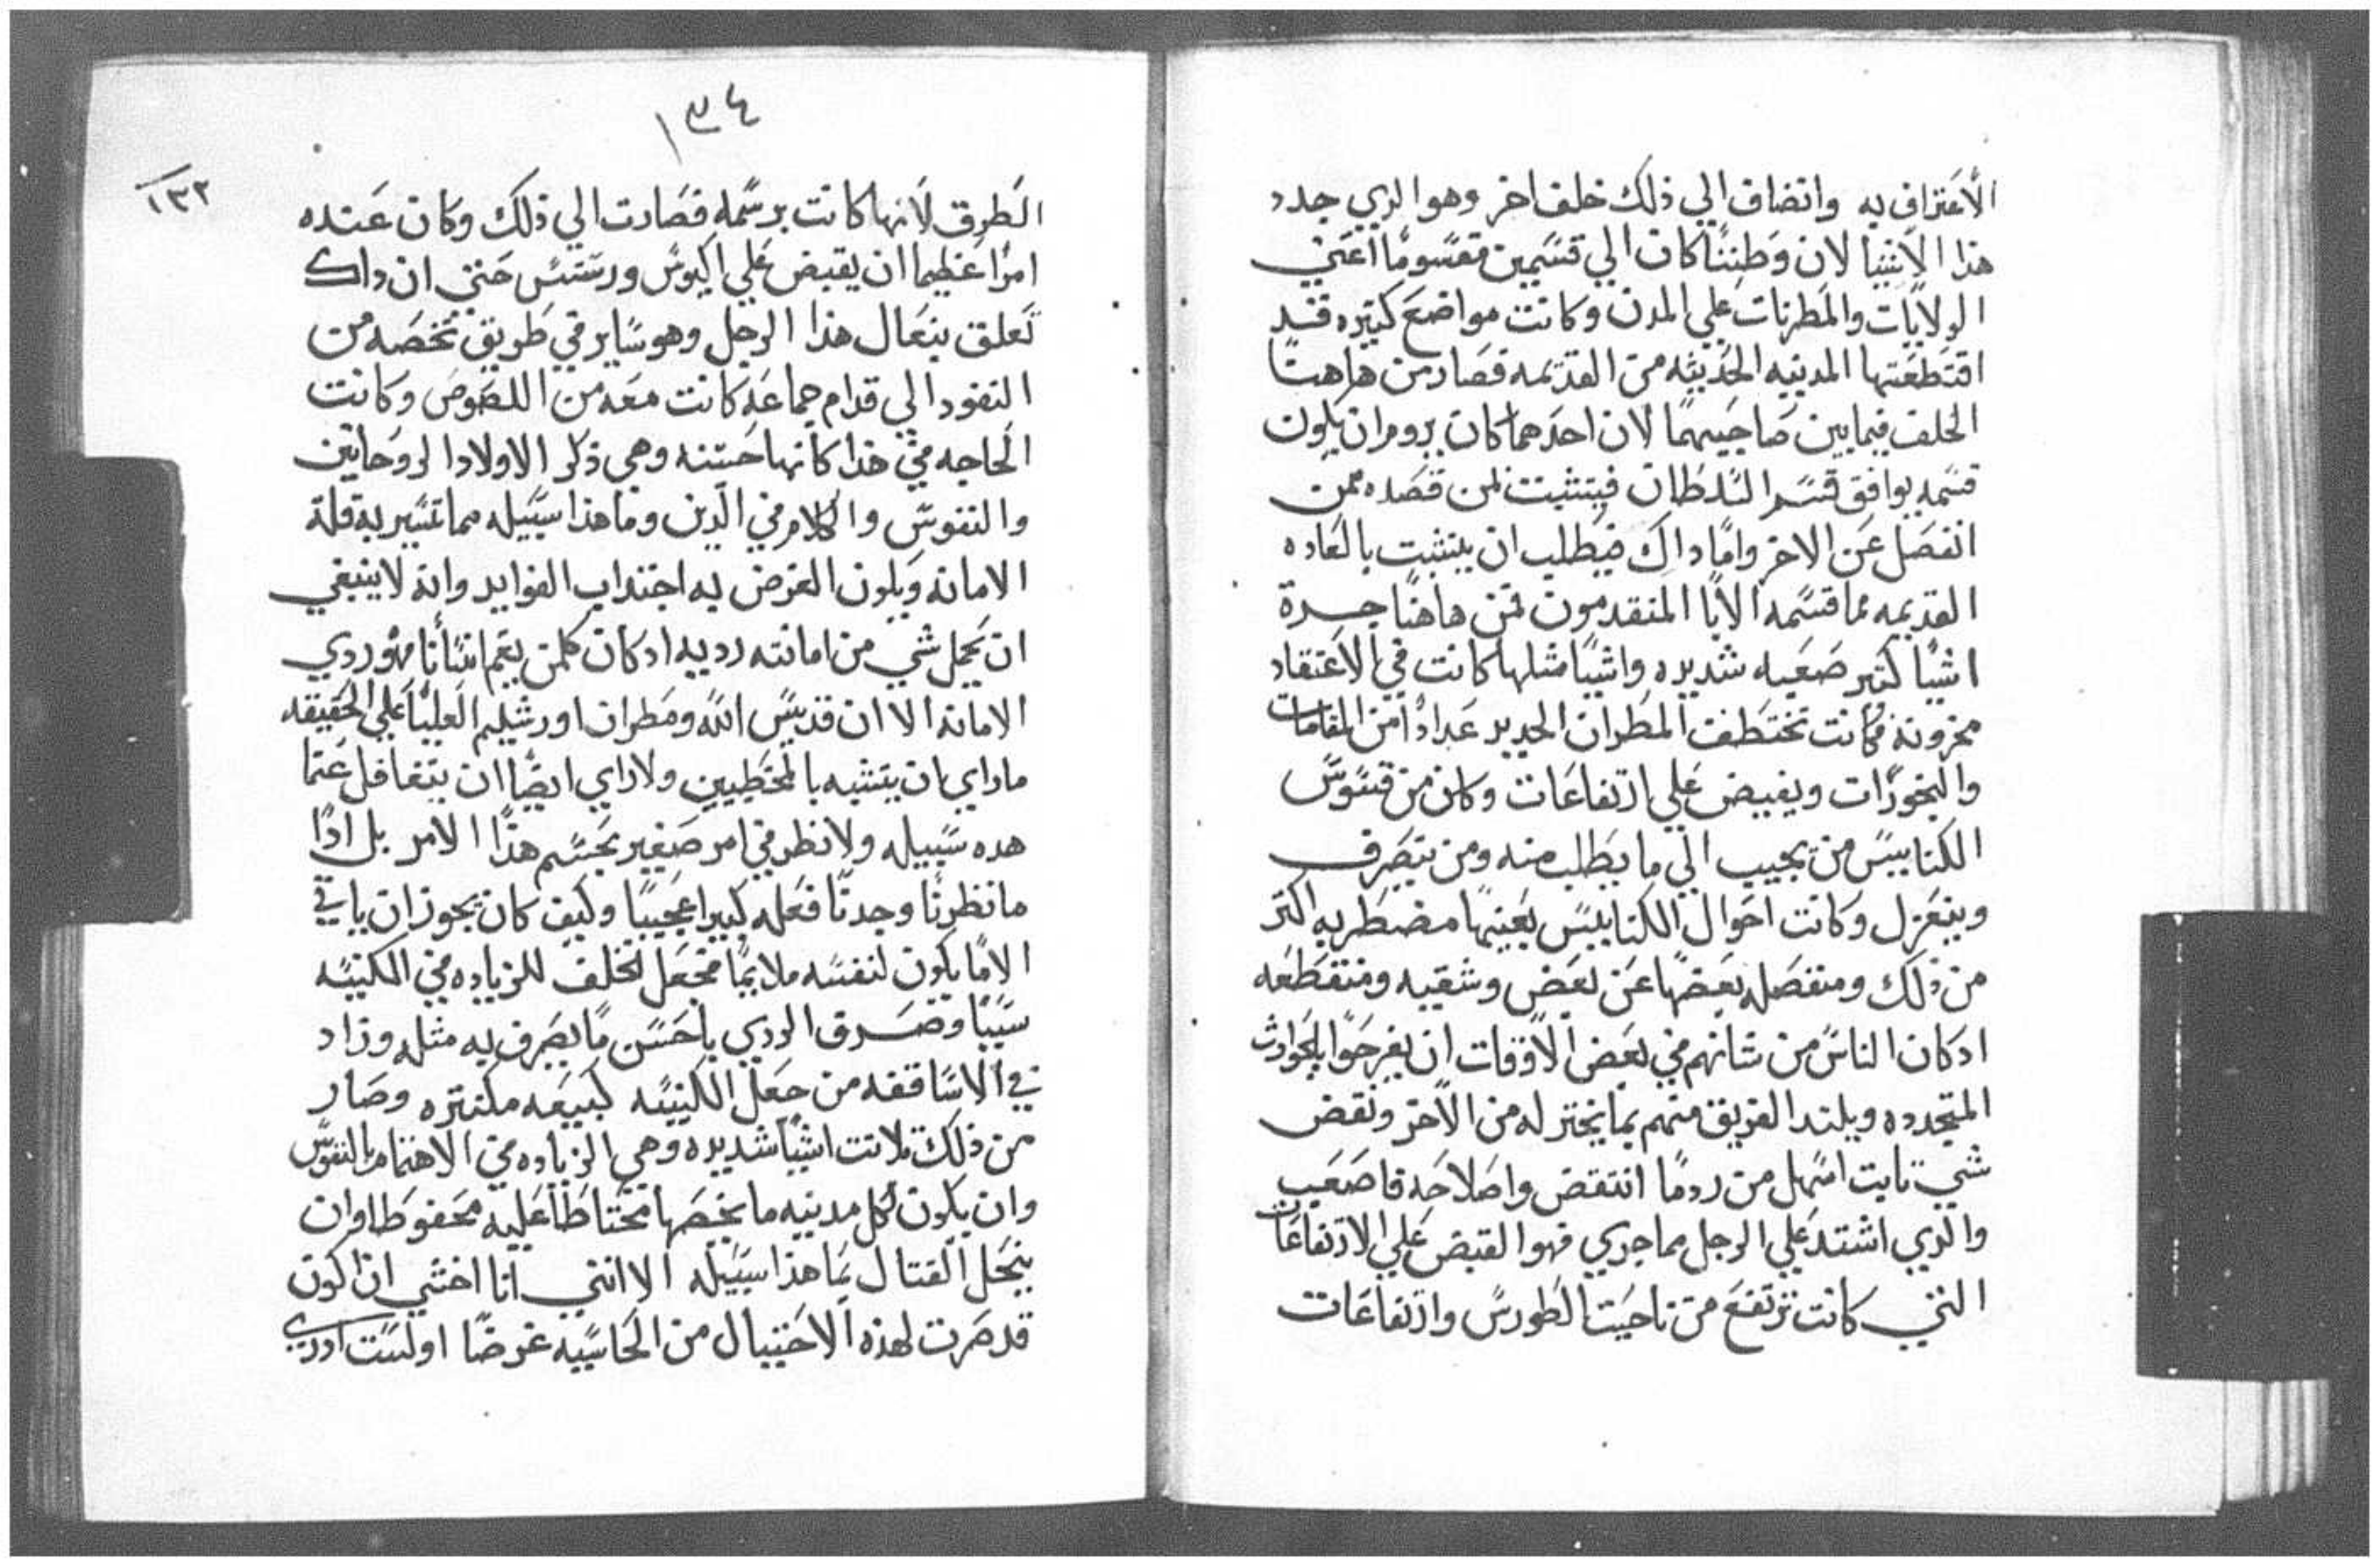 الاعتراف به وانضاف الي ذلك خلف اخر وهو الدي جدد
هذا الاشيا لان وَطننا كان الي قسَمين مقسومًا اعَني
الولايات والمَطرنات علي المدن وكانت مواضعَ كتيره قد
اقتطعَتها المدينه الحَديثه من القديمه فصَار من هاهنا
الخلف فيما بين صَاحبَيهما لان احدَهما كان يروم ان يكون
قسَمه يوافق قسَم السَلطان فيتثبت لمن قصَده ممن
انفصَل عَن الاخر وامَا داك فيطلب ان يتثبت بالعَاده
القديمه مما قسَمه الابا المتقدمون فمن هاهنا جرت
اشيا كتير صَعبه شديده واشيَا مثلها كانت في الاعتقاد
مخزونه فكانت تختطف المطران الجديد عَدادًا من المقامات
والتجوزات ويفيض عَلي ارتفاعَات وكان من قسَوس
الكنايس من يجيب الي ما يطلب منه ومن يتصَرف
وينعَزل وكانت احَوال الكنايس بعَينها مضطربه اكتر
من ذلك ومنفصَله بعَضها عَن بعَض وشقيه ومتقطعَه
ادكان الناسَ من شانهم في بعَض الاوقات ان يفرحَوا بالحَوادث
المتجدده ويلتد الفريق منهم بما يختر له من الاخر ونقض
شي تابت اسَهل من ردما انتقض واصَلاحَه فاصَعَب
والدي اشتد عَلي الرجل مما جري فهو القبض عَلي الارتفاعَات
التي كانت ترتفعَ من ناحَيت الطَورسَ وارتفاعَات
١٣٤
١٣٢
الطَرق لانها كانت برسَمه فصَارت الي ذلك وكان عَنده
امرًا عَظيما ان يقبض عَلي اكبوسَ ورسَتسَ حَتي ان داك
تعَلق بنعَال هذا الرجل وهو سَاير في طَريق تخصَه من
النفود الي قدام جماعَه كانت معَه من اللصَوصَ وكانت
الحَاجه في هذا كانها حَسَنه وهي ذكر الاولاد الروحَانين
والنفوسَ والكلام في الدين وما هذا سَبيله مما تسَير به قلة
الامانه ويكون الغرض به اجتداب الفوايد وانه لا ينبغي
ان يحَمل شي من امانته رديه ادكان كلمن يغم انسَانا فهو ردي
الامانه الا ان قديسَ الله ومَطران اورشليم العَليا عَلي الحَقيقه
ماراي ان يتشبه بالمخَطيين ولا راي ايضًا ان يتغافل عَما
هده سَبيله ولا نظر في امر صَغير بحَسَم هذا الامر بل اذا
ما نظرنا وجدنا فعَله كبيرا عَجيبًا وكيف كان يجوز ان ياتي
الا ما يكون لنفسَه ملايمًا فجعَل الخلف للزياده في الكنيسَه
سَببًا وصَرف الردي باحَسَن ما يصَرف به مثله وزاد
في الاسَاقفه من جعَل الكنيسَه كبيعَه مكتتره وصَار
من ذلك تلاتت اشيًا شديده وهي الزياده في الاهتمام بالنفوسَ
وان يكون لكل مدينه ما يخصَها محَتاطَا عَليه محَفوظا وان
ينحَل القتال بما هذا سَبيله الا انني انا اخشي ان اكون
قد صَرت لهذه الاحَتيال من الحَاسَيه غرضًا اولسَت ادري